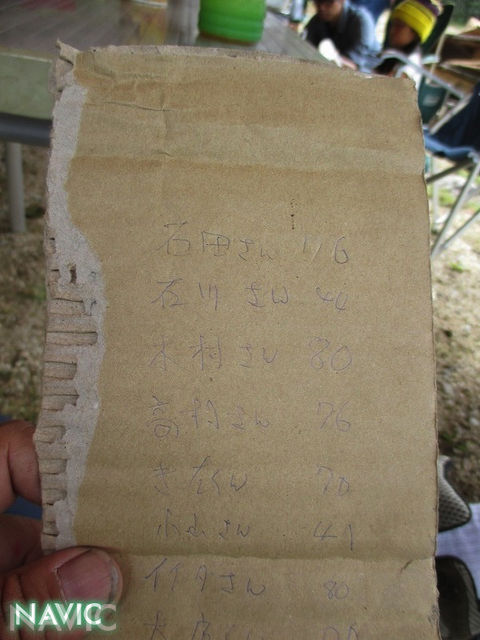 石田さん 116
石川さん 40
木村さん 80
高村さん 76
さん 70
小山さん 41
イナタさん 80
NAVIC